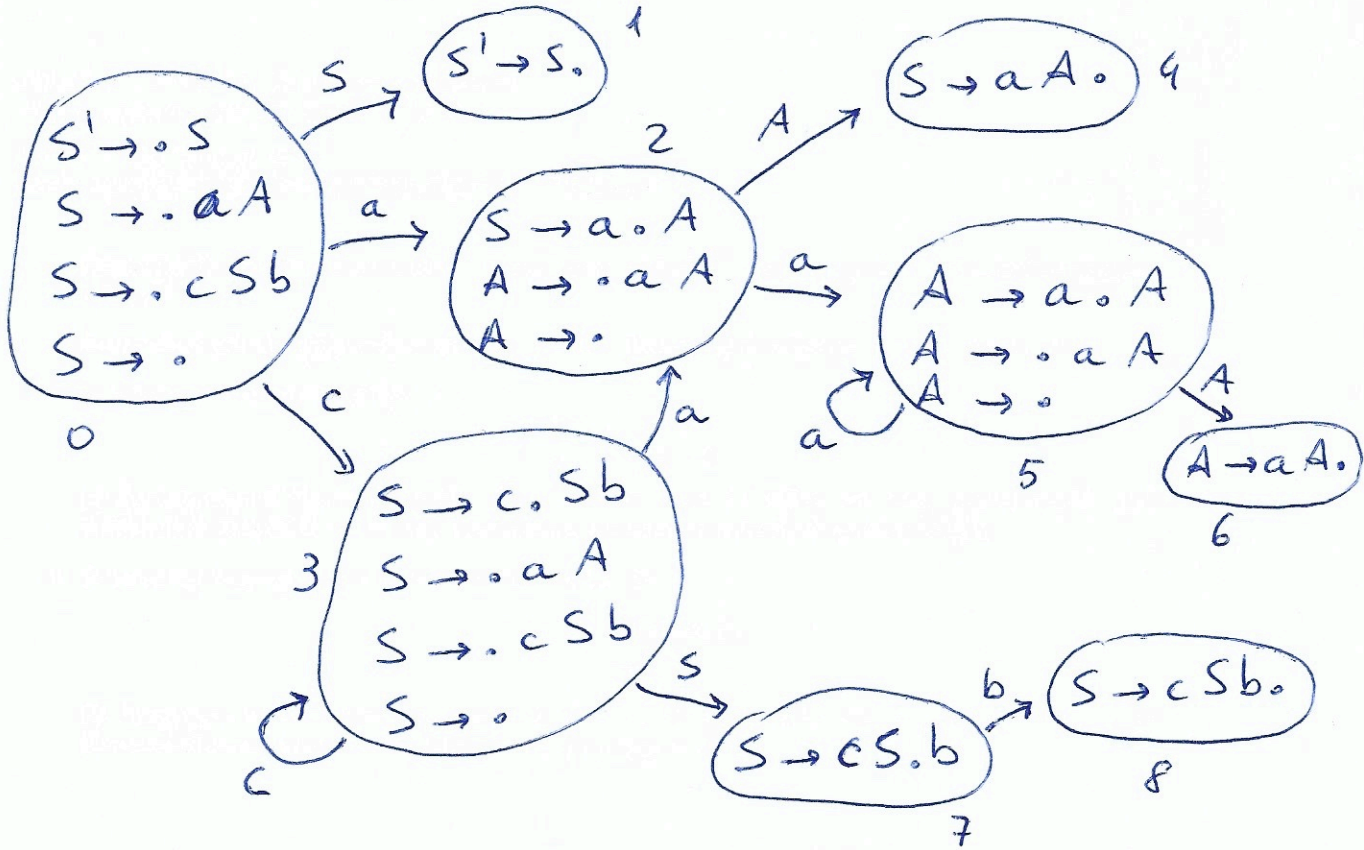 S' → . S
S → . a A
S → . c S b
S → .
0
S
S' → S.
1
a
2
S → a . A
A → . a A
A → .
A
S → a A .
4
a
A → a . A
A → . a A
A → .
a
5
A
A → a A.
6
c
a
3
S → c . S b
S → . a A
S → . c S b
S → .
c
S
S → c S . b
7
b
S → c S b .
8